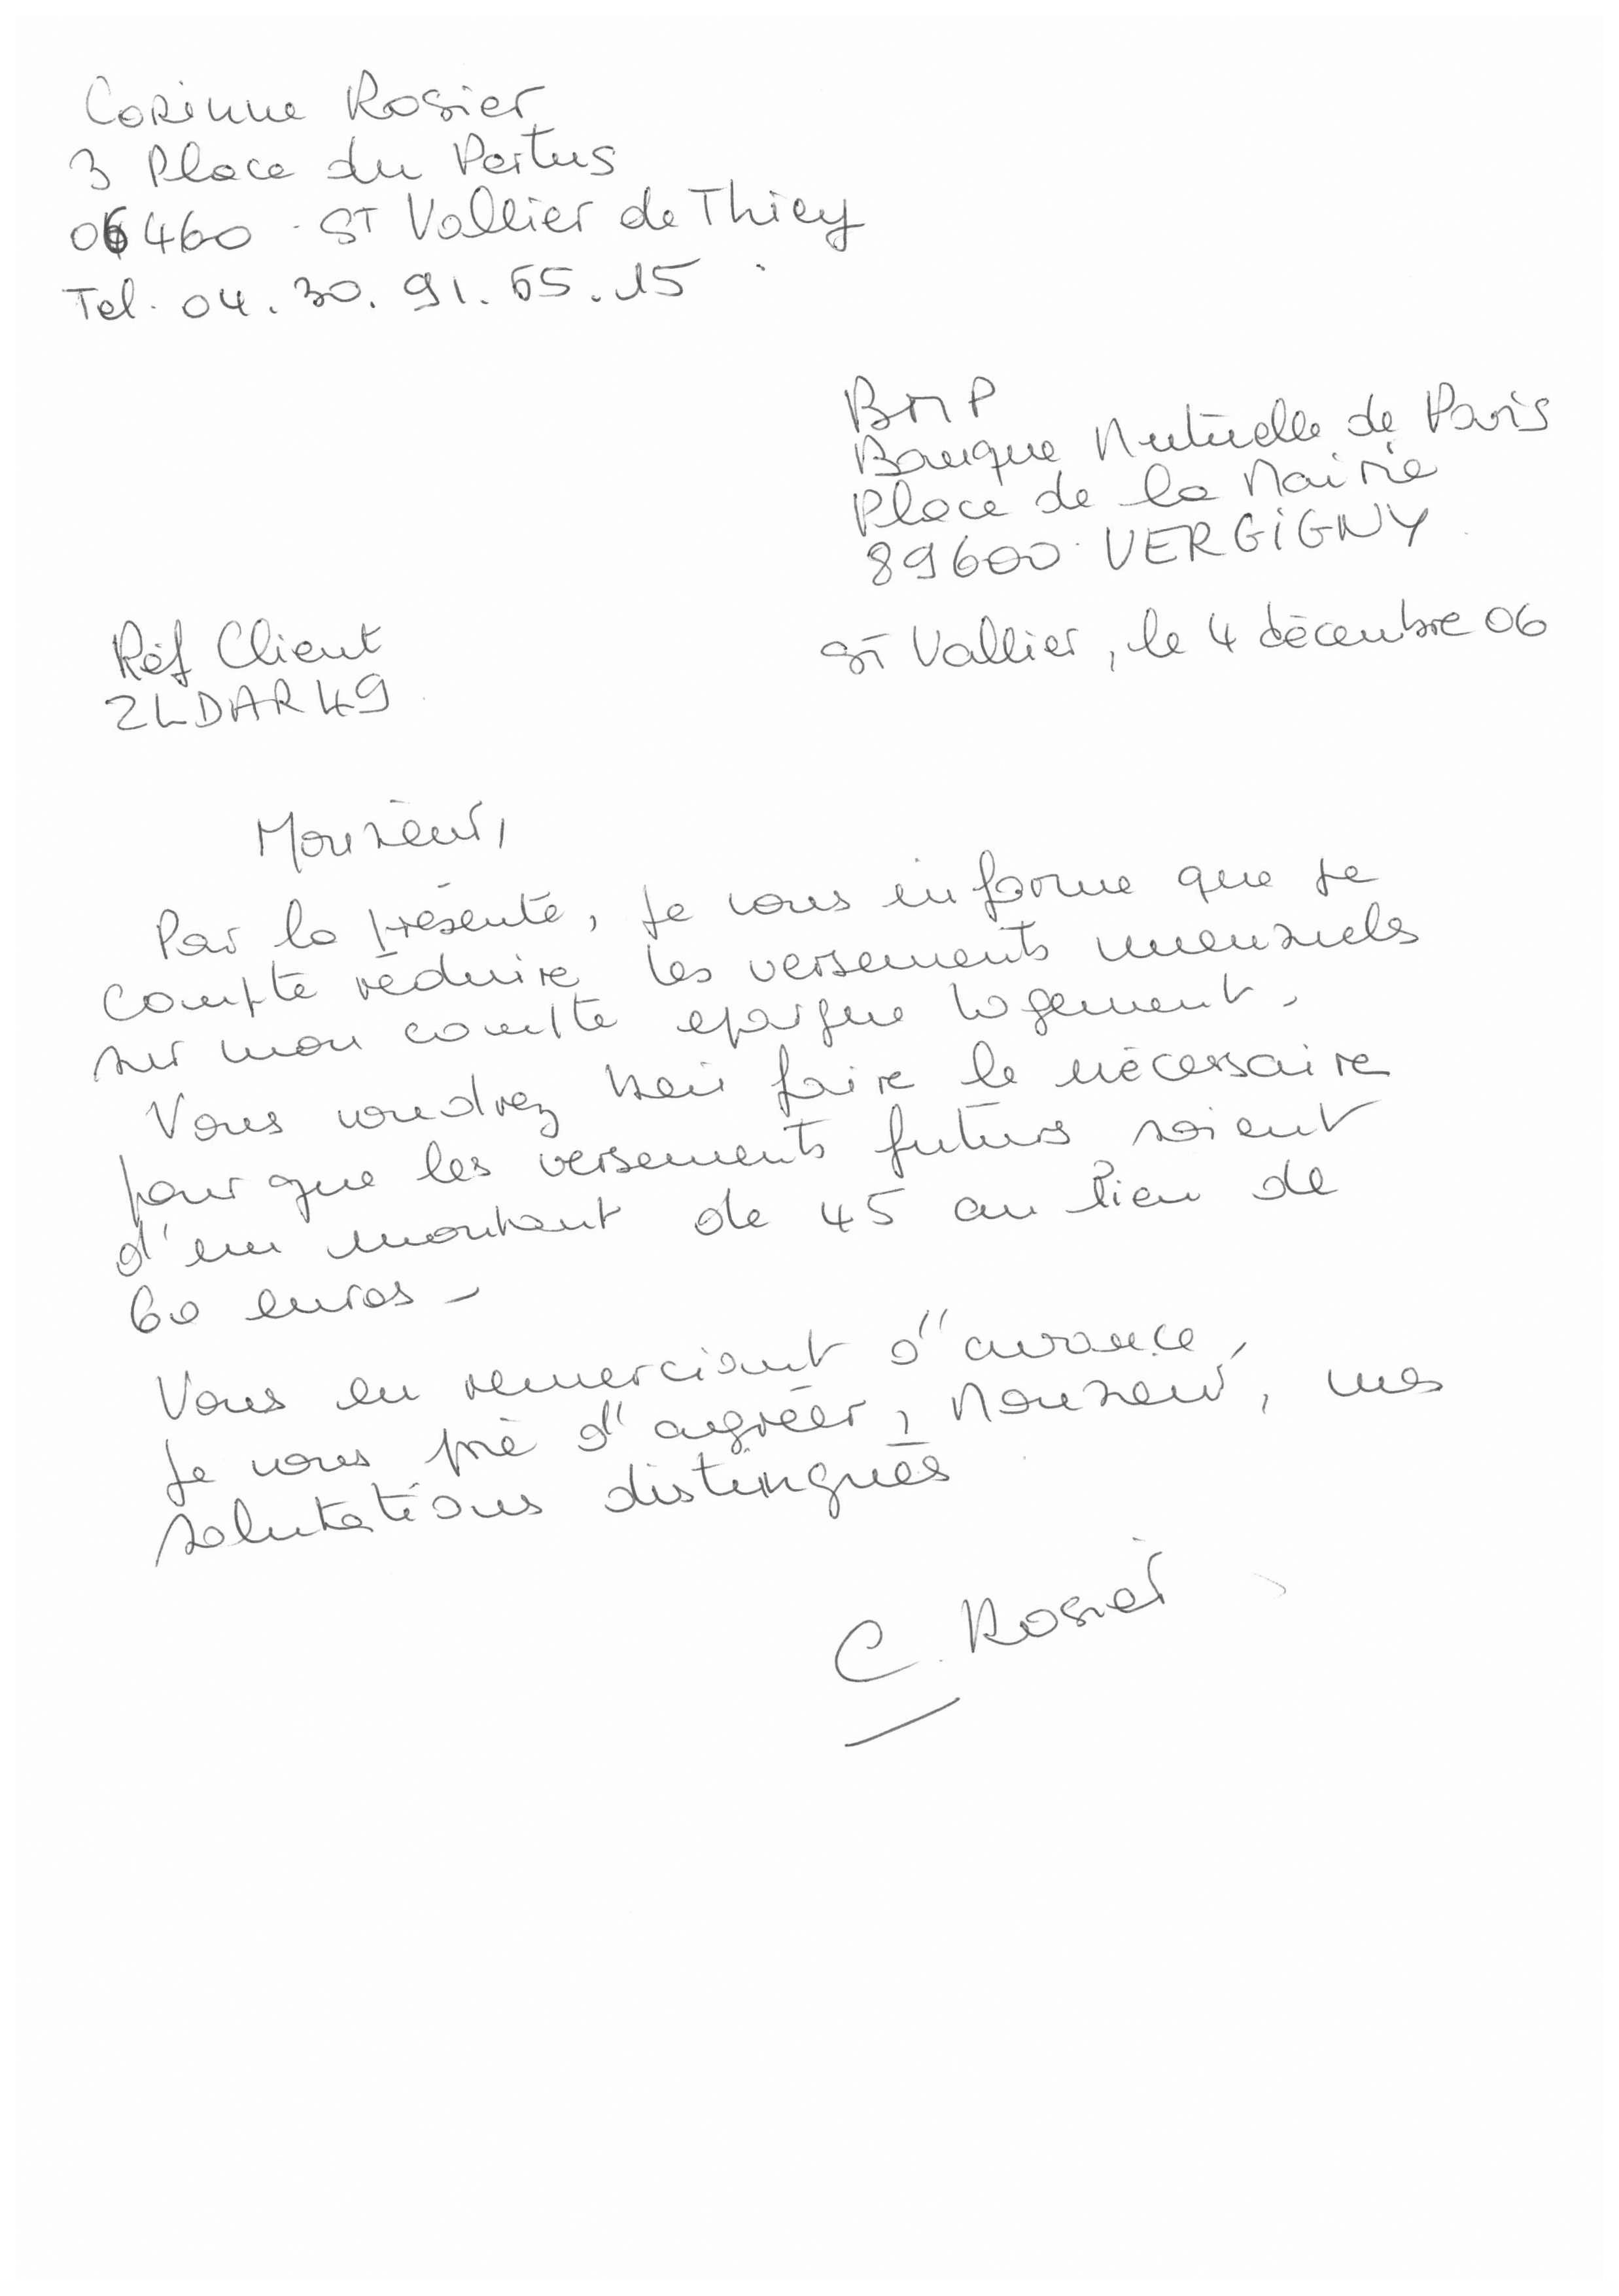 Corinne Rosier
3 Place du Pertus
06460 - ST Vallier de Thiey
Tel. 04.30.91.65.15
BMP
Banque Mutuelle de Paris
Place de la Mairie
89600 VERGIGNY
ST Vallier, le 4 décembre 06
Réf Client
ZLDAR49
Monsieur,
Par la présente, je vous informe que je
compte réduire les versements mensuels
sur mon compte epargne logement.
Vous voudrez bien faire le nécessaire
pour que les versements futurs soient
d'un montant de 45 au lieu de
60 euros -
Vous en remerciant d'avance,
je vous prie d'agréer, Monsieur, mes
salutations distingués
C. Rosier